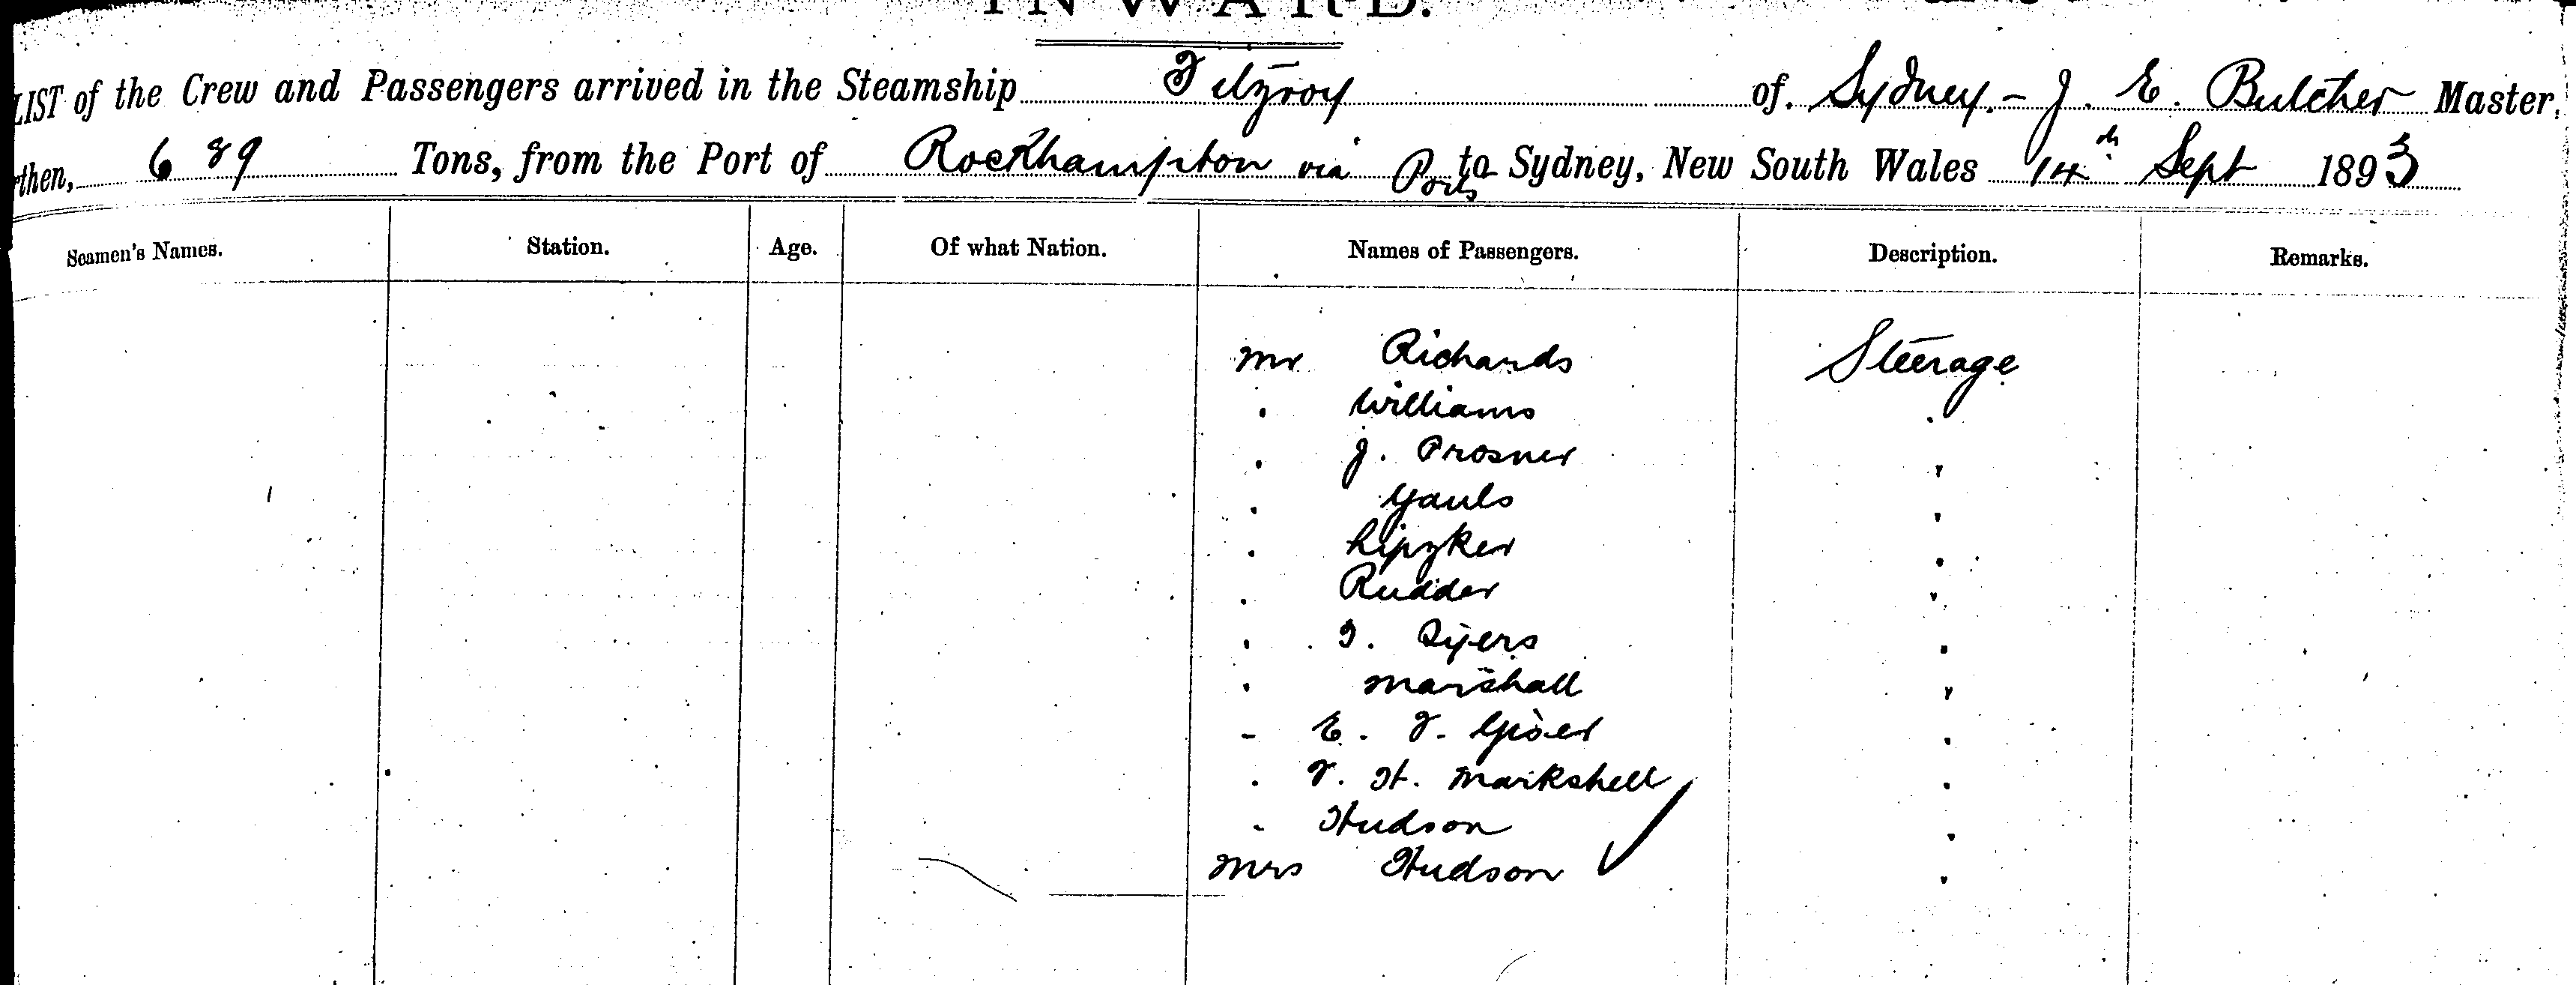 INWARD.
LIST of the Crew and Passengers arrived in the Steamship Fitzroy of. Sydney.- J. E. Butcher Master,
rthen, 689 Tons, from the Port of Rockhampton via Ports to Sydney, New South Wales 14th Sept 1893
Seamen's Names. Station. Age. Of what Nation. Names of Passengers. Description. Remarks.
Mr Richards Steerage
. Williams "
. J. Prosner "
. Gauls "
. Lipzker "
. Rudder "
. T. Syers "
. Marshall "
- E. F. "
. F. H. Markshell "
- Hudson "
Mrs Hudson "